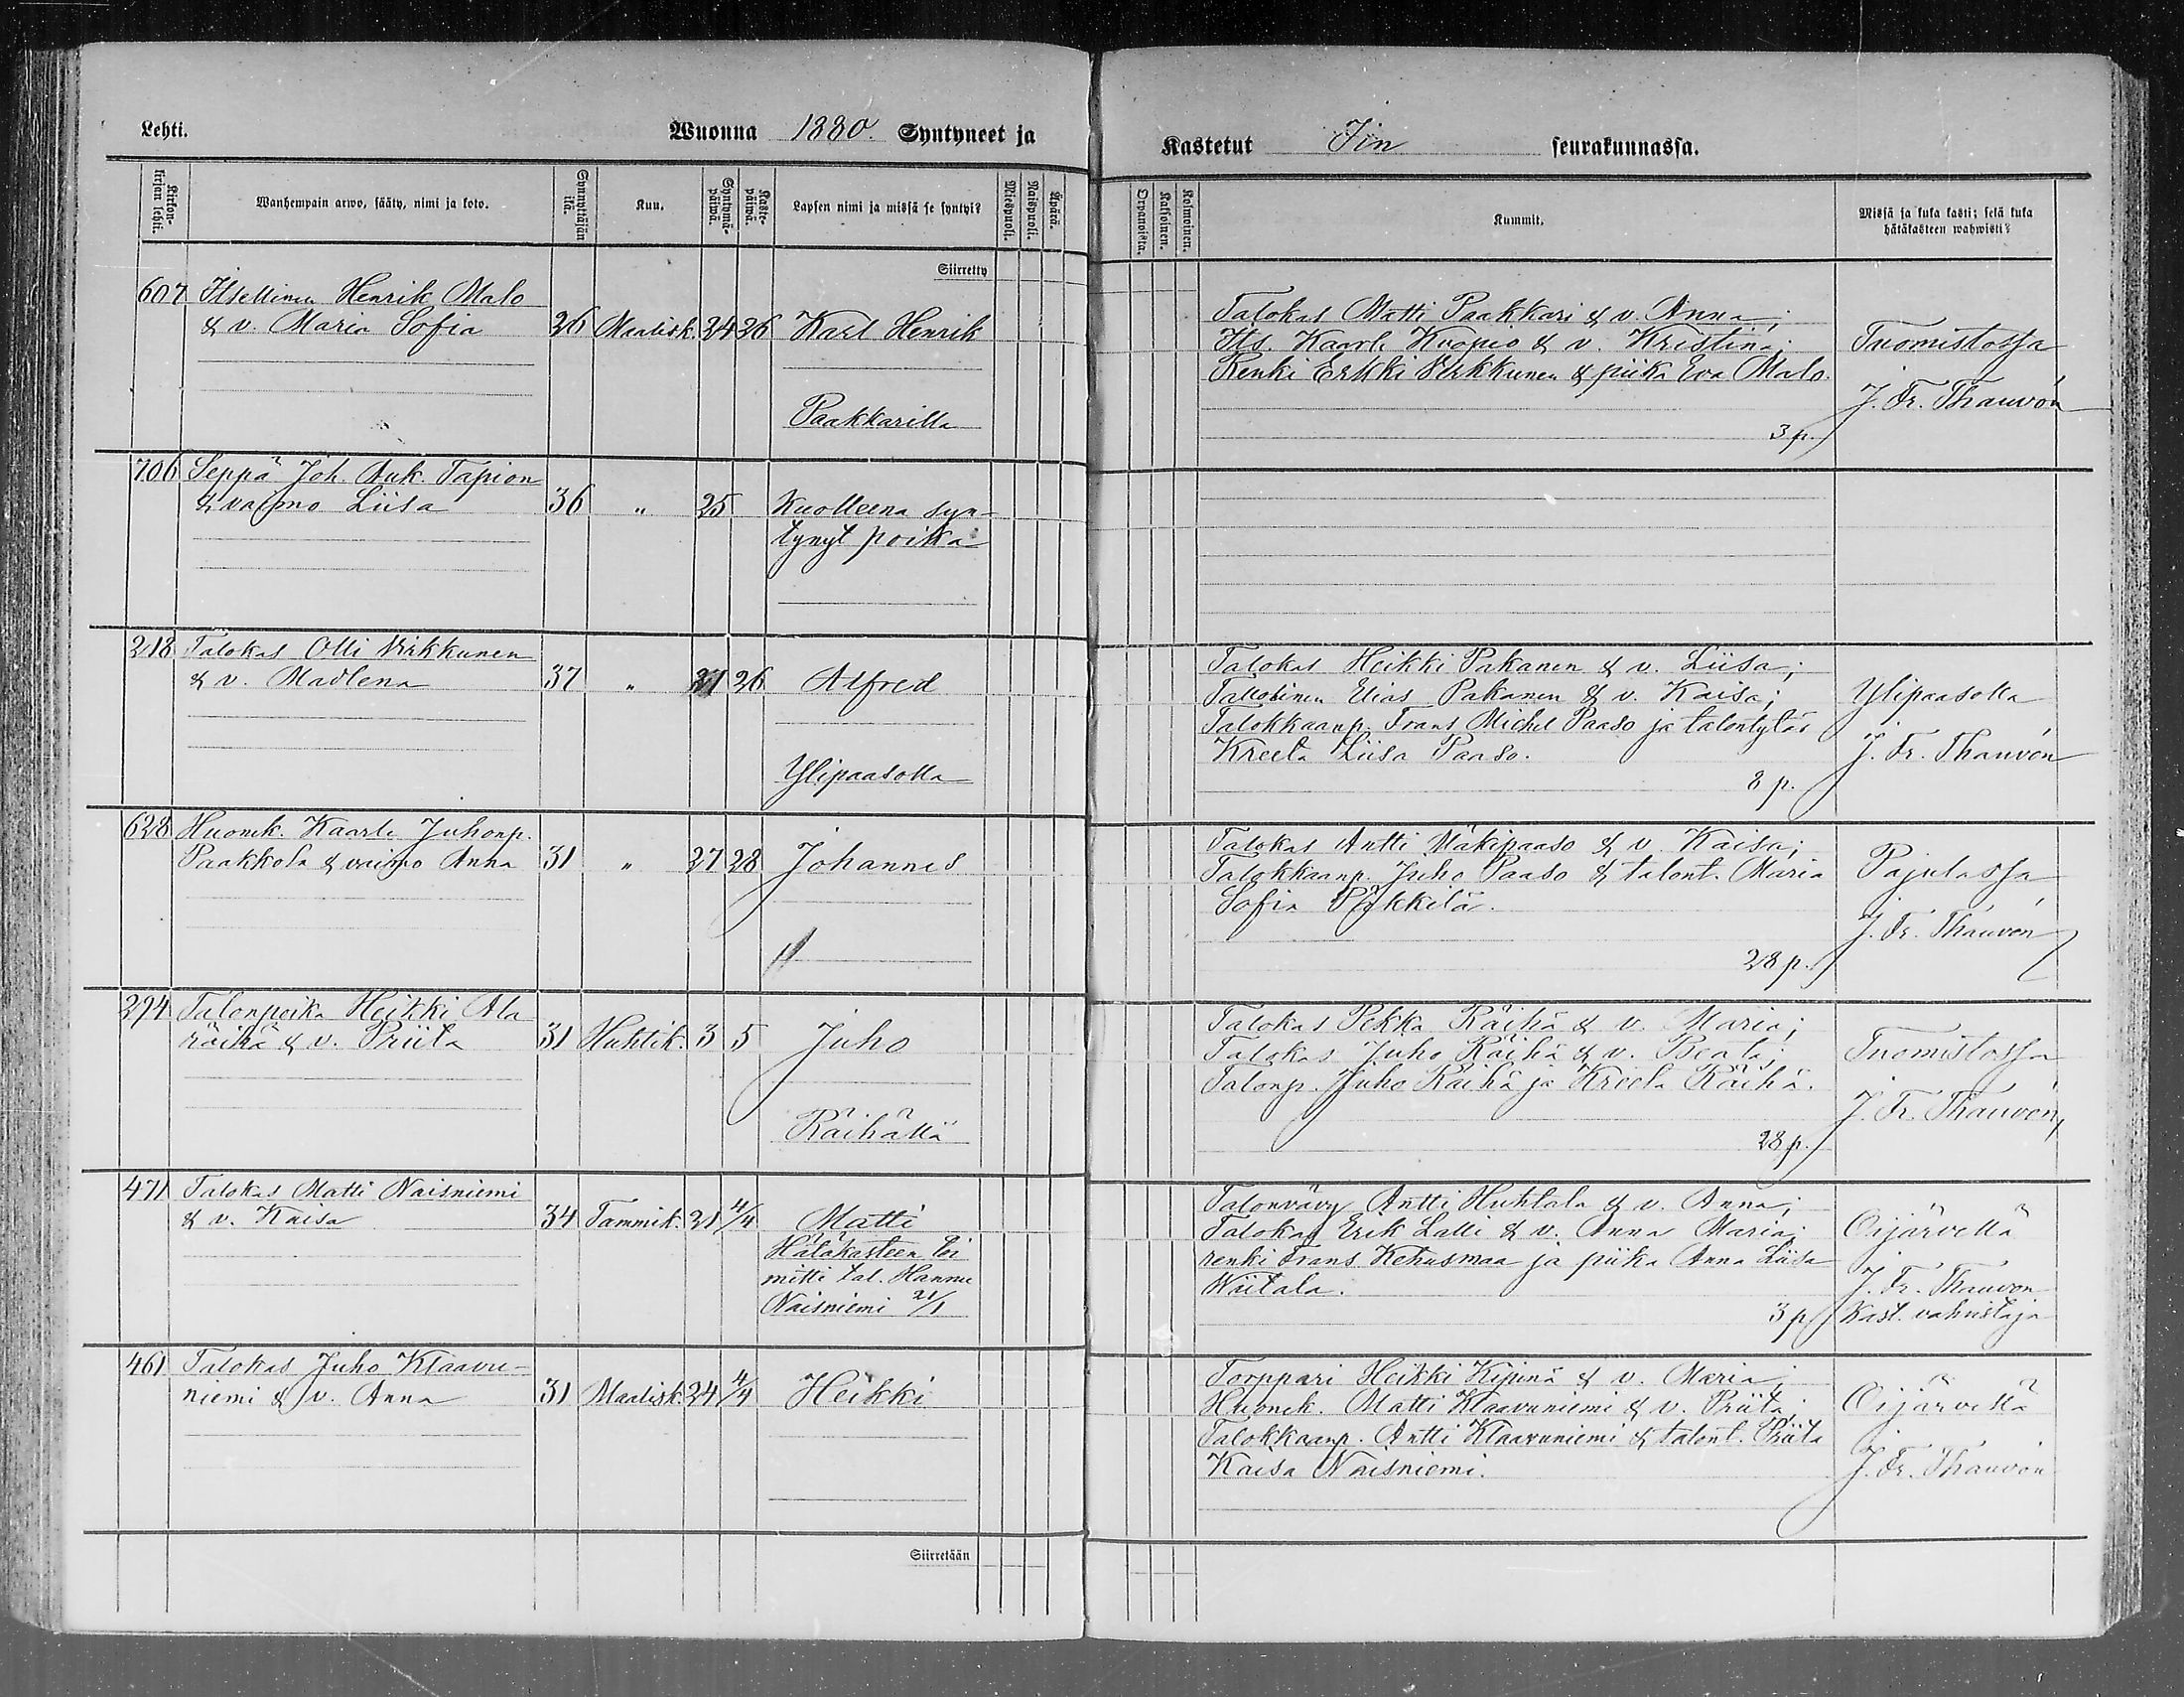 Lehti.
Wuonna 1880. Syntyneet ja
Kastetut Iin seurakunnassa.
Kirkonkirjan lehti.
Wanhempain arwo, sääty, nimi ja koto.
Synnyttäjän ikä.
Kuu.
Syntymäpäiwä.
Kastepäiwä.
Lapsen nimi ja missä se syntyi?
Miespuoli.
Naispuoli.
Äpärä.
Orpanoista.
Kaksoinen.
Kolmoinen.
Kummit.
Missä ja kuka kasti; sekä kuka
hätäkasteen wahwisti?
Siirretty
607 Itsellinen Henrik Malo
& v. Maria Sofia 26 Maalisk. 24 26 Karl Henrik
Paakkarilla
Talokas Matti Paakkari & v. Anna;
Its. Kaarle Kuopus & v. Kristina;
Renki Erkki Virkkunen & piika Eva Malo.
3 p.
Tuomistossa
J. Fr. Thauvón
706 Seppä Joh. Auk. Tapion
& vaimo Liisa 36 " 25 Kuolleena syn-
tynyt poika
218 Talokas Olli Virkkunen
& v. Madlena 37 " 21 26 Alfred
Ylipaasolla
Talokas Heikki Pakanen & v. Liisa;
Tallollinen Elias Pakanen & v. Kaisa;
Talokkaanp. Frans Michel Paaso ja talontytär
Kreeta Liisa Paaso.
8 p.
Ylipaasolla
J. Fr. Thauvón
628 Huonek. Kaarle Juhonp.
Paakkola & vaimo Anna 31 " 27 28 Johannes
Talokas Antti Mäkipaaso & v. Kaisa;
Talokkaanp. Juho Paaso & talont. Maria
Sofia Pökkilä.
28 p.
Pajulassa
J. Fr. Thauvón
294 Talonpoika Heikki Ala
räihä & v. Priita 31 Huhtik. 3 5 Juho
Räihällä
Talokas Pekka Räihä & v. Maria;
Talokas Juho Räihä & v. Beata;
Talonp. Juho Räihä ja Kreeta Räihä.
28 p.
Tuomistossa
J. Fr. Thauvón
471 Talokas Matti Naisniemi
& v. Kaisa 34 Tammik. 21 4/4 Matti
Hätäkasteen toi
mitti tal. Hannu
Naisniemi 21/1
Talonvävy Antti Huhtala & v. Anna;
Talokas Erik Lalli & v. Anna Maria;
renki Frans Kehusmaa ja piika Anna Liisa
Wiitala.
3 p.
Oijärvellä
J. Fr. Thauvon
Kast. vahvistaja
461 Talokas Juho Klaavu-
niemi & v. Anna 31 Maalisk. 24 4/4 Heikki
Torppari Heikki Kipinä & v. Maria;
Huonek. Matti Klaavuniemi & v. Priita;
Talokkaanp. Antti Klaavuniemi & talont. Priita
Kaisa Naisniemi.
Oijärvellä
J. Fr. Thauvón
Siirretään